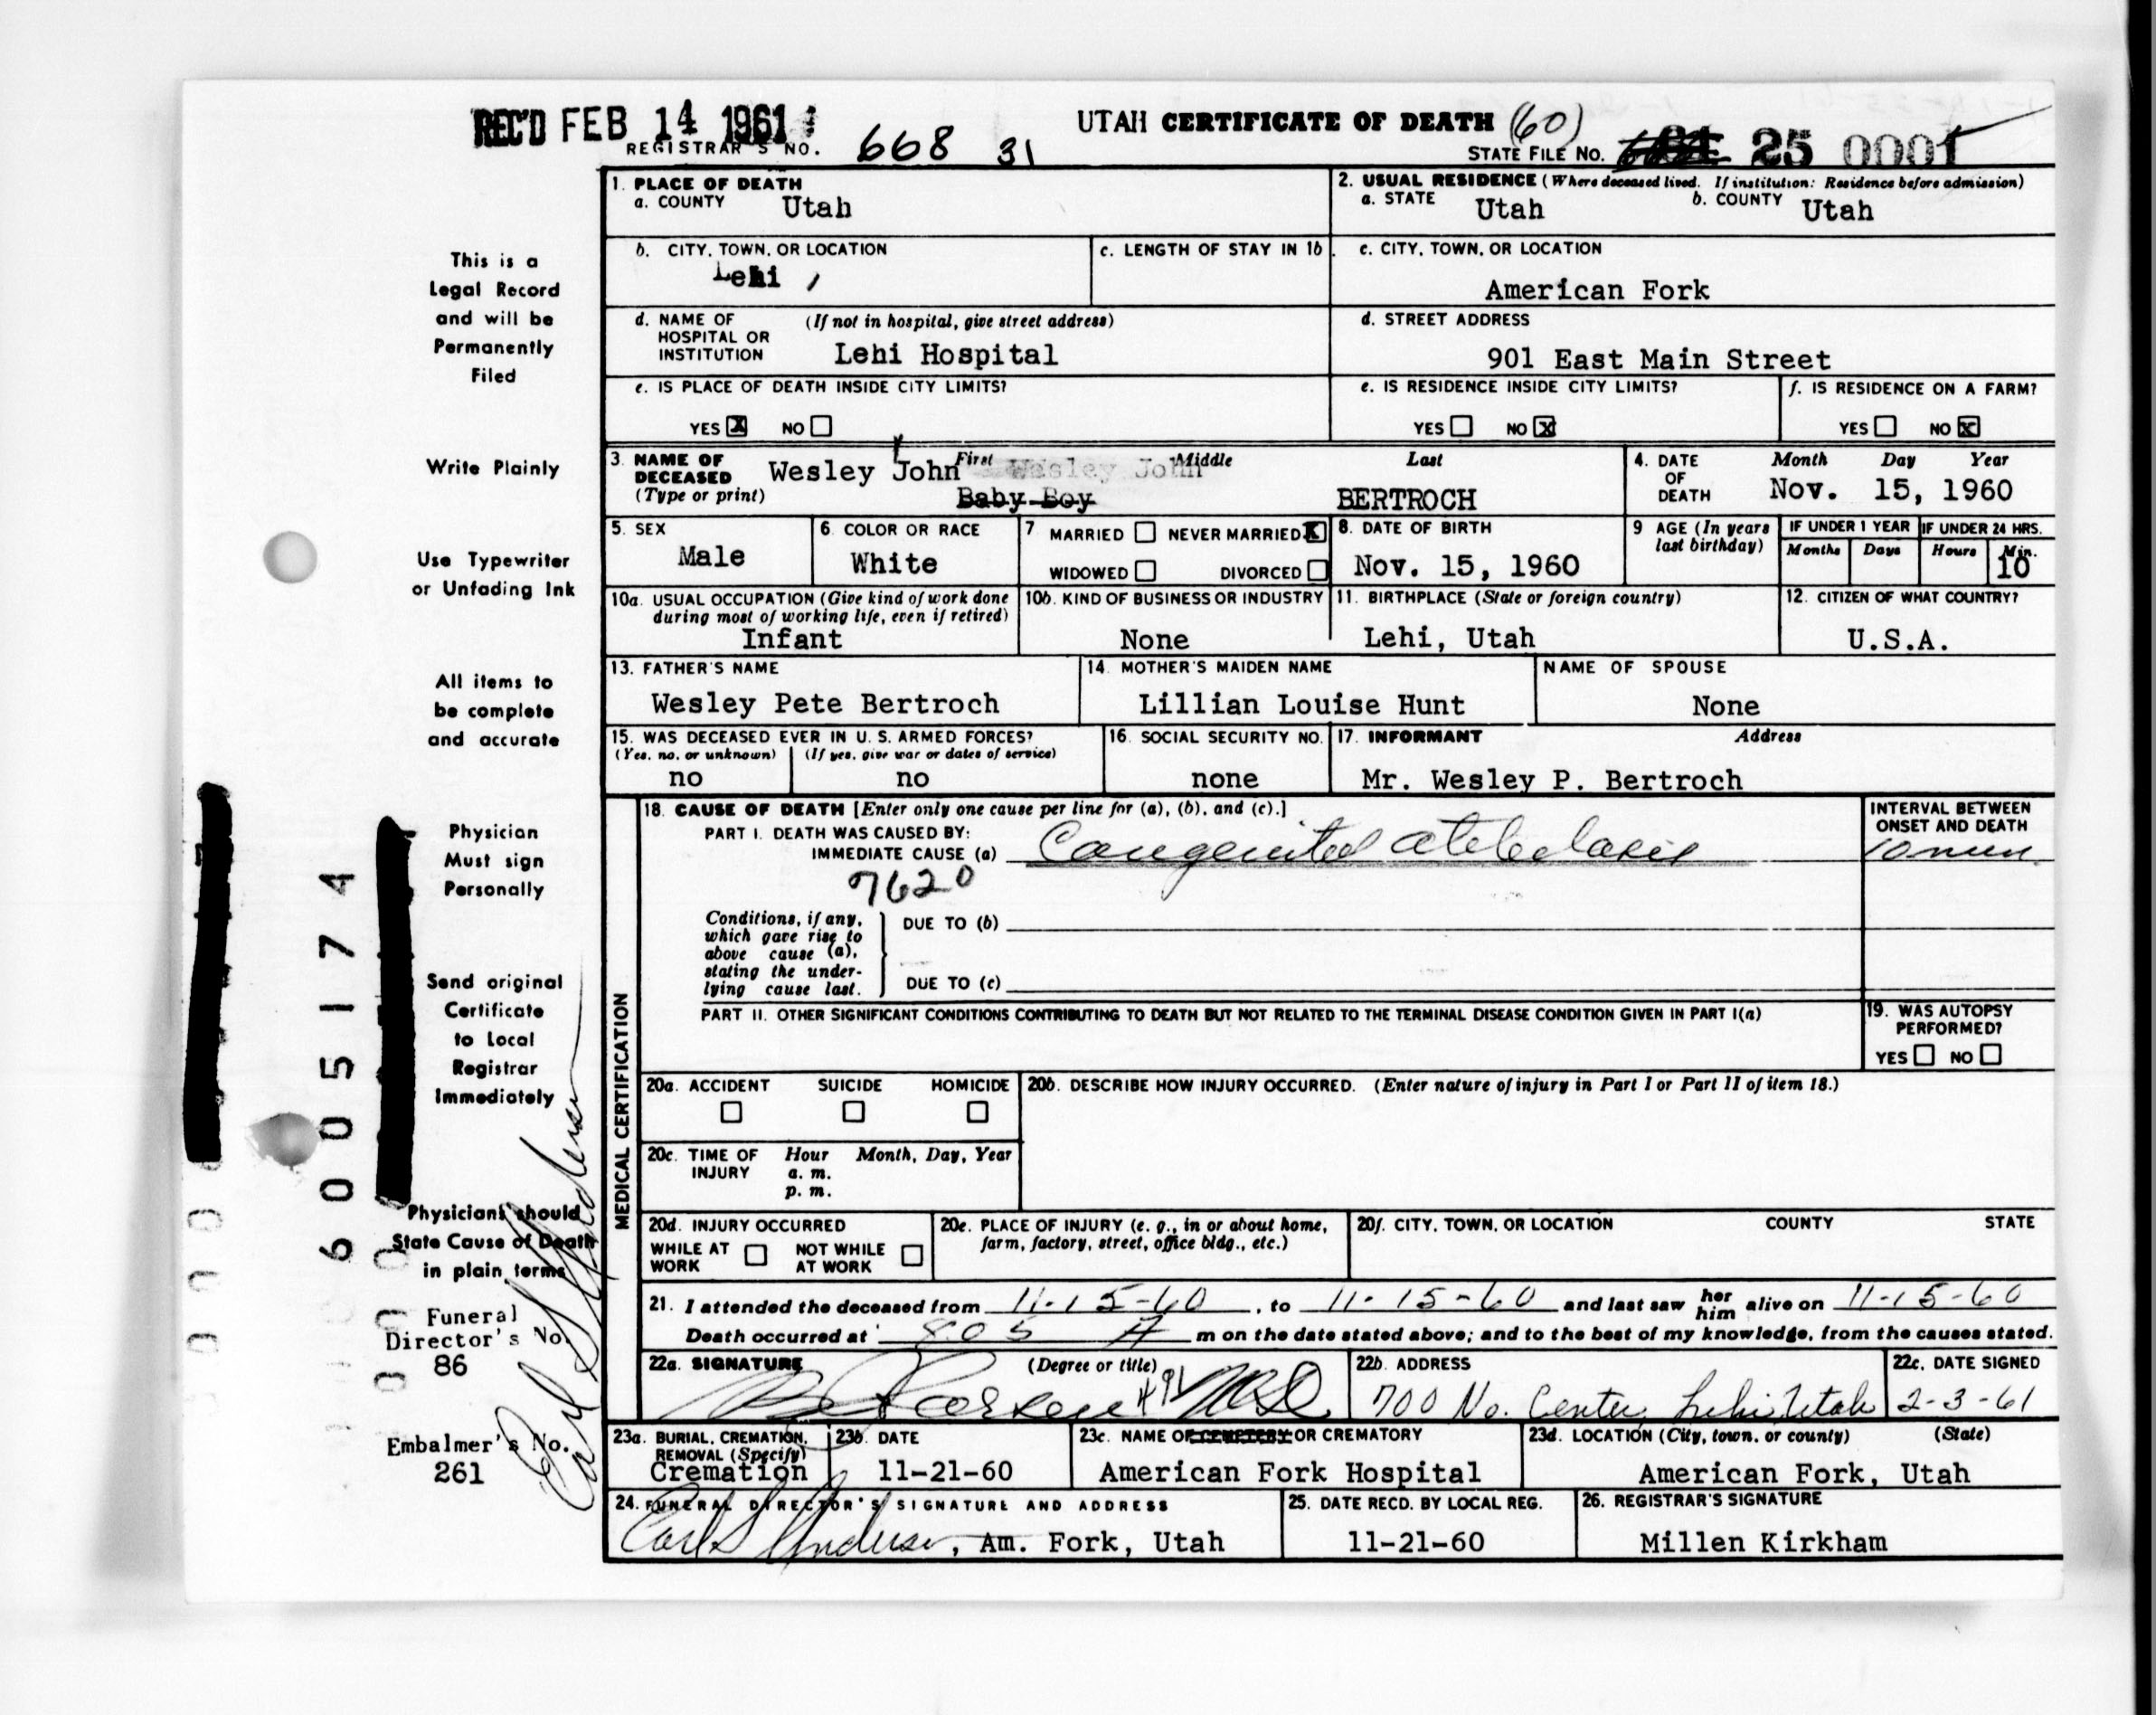 REC'D FEB 14 1961
UTAH CERTIFICATE OF DEATH (60)
REGISTRAR'S NO. 668 31
STATE FILE NO. 25 0001
1. PLACE OF DEATH
a. COUNTY Utah
2. USUAL RESIDENCE (Where deceased lived. If institution: Residence before admission)
a. STATE Utah b. COUNTY Utah
b. CITY, TOWN, OR LOCATION
Lehi
c. LENGTH OF STAY IN 1b
c. CITY, TOWN, OR LOCATION
American Fork
d. NAME OF HOSPITAL OR INSTITUTION (If not in hospital, give street address)
Lehi Hospital
d. STREET ADDRESS
901 East Main Street
e. IS PLACE OF DEATH INSIDE CITY LIMITS?
YES X NO
e. IS RESIDENCE INSIDE CITY LIMITS?
YES NO X
f. IS RESIDENCE ON A FARM?
YES NO X
3. NAME OF DECEASED (Type or print)
First Middle Last
Wesley John Wesley John
Baby Boy BERTROCH
4. DATE OF DEATH
Month Day Year
Nov. 15, 1960
5. SEX
Male
6. COLOR OR RACE
White
7 MARRIED NEVER MARRIED X
WIDOWED DIVORCED
8. DATE OF BIRTH
Nov. 15, 1960
9 AGE (In years last birthday)
IF UNDER 1 YEAR
Months Days
IF UNDER 24 HRS.
Hours Min.
10
10a. USUAL OCCUPATION (Give kind of work done during most of working life, even if retired)
Infant
10b. KIND OF BUSINESS OR INDUSTRY
None
11. BIRTHPLACE (State or foreign country)
Lehi, Utah
12. CITIZEN OF WHAT COUNTRY?
U.S.A.
13. FATHER'S NAME
Wesley Pete Bertroch
14. MOTHER'S MAIDEN NAME
Lillian Louise Hunt
NAME OF SPOUSE
None
15. WAS DECEASED EVER IN U. S. ARMED FORCES?
(Yes, no, or unknown) (If yes, give war or dates of service)
no no
16. SOCIAL SECURITY NO.
none
17. INFORMANT Address
Mr. Wesley P. Bertroch
MEDICAL CERTIFICATION
18. CAUSE OF DEATH [Enter only one cause per line for (a), (b), and (c).]
PART I. DEATH WAS CAUSED BY:
IMMEDIATE CAUSE (a) Congenital atelelasis
7620
INTERVAL BETWEEN ONSET AND DEATH
10 min
Conditions, if any, which gave rise to above cause (a), stating the underlying cause last.
DUE TO (b)
DUE TO (c)
PART II. OTHER SIGNIFICANT CONDITIONS CONTRIBUTING TO DEATH BUT NOT RELATED TO THE TERMINAL DISEASE CONDITION GIVEN IN PART I(a)
19. WAS AUTOPSY PERFORMED?
YES NO
20a. ACCIDENT SUICIDE HOMICIDE
20b. DESCRIBE HOW INJURY OCCURRED. (Enter nature of injury in Part I or Part II of item 18.)
20c. TIME OF INJURY Hour Month, Day, Year
a. m.
p. m.
20d. INJURY OCCURRED
WHILE AT WORK NOT WHILE AT WORK
20e. PLACE OF INJURY (e. g., in or about home, farm, factory, street, office bldg., etc.)
20f. CITY, TOWN, OR LOCATION COUNTY STATE
21. I attended the deceased from 11-15-60, to 11-15-60 and last saw her him alive on 11-15-60
Death occurred at 805 A m on the date stated above; and to the best of my knowledge, from the causes stated.
22a. SIGNATURE (Degree or title)
22b. ADDRESS
700 No. Center, Lehi Utah
22c. DATE SIGNED
2-3-61
23a. BURIAL, CREMATION, REMOVAL (Specify)
Cremation
23b. DATE
11-21-60
23c. NAME OF CEMETERY OR CREMATORY
American Fork Hospital
23d. LOCATION (City, town, or county) (State)
American Fork, Utah
24. FUNERAL DIRECTOR'S SIGNATURE AND ADDRESS
Earl S Anderson, Am. Fork, Utah
25. DATE RECD. BY LOCAL REG.
11-21-60
26. REGISTRAR'S SIGNATURE
Millen Kirkham
This is a
Legal Record
and will be
Permanently
Filed
Write Plainly
Use Typewriter
or Unfading Ink
All items to
be complete
and accurate
Physician
Must sign
Personally
Send original
Certificate
to Local
Registrar
Immediately
Physicians should
State Cause of Death
in plain terms
Funeral
Director's No.
86
Embalmer's No.
261
Earl S Anderson
6005174